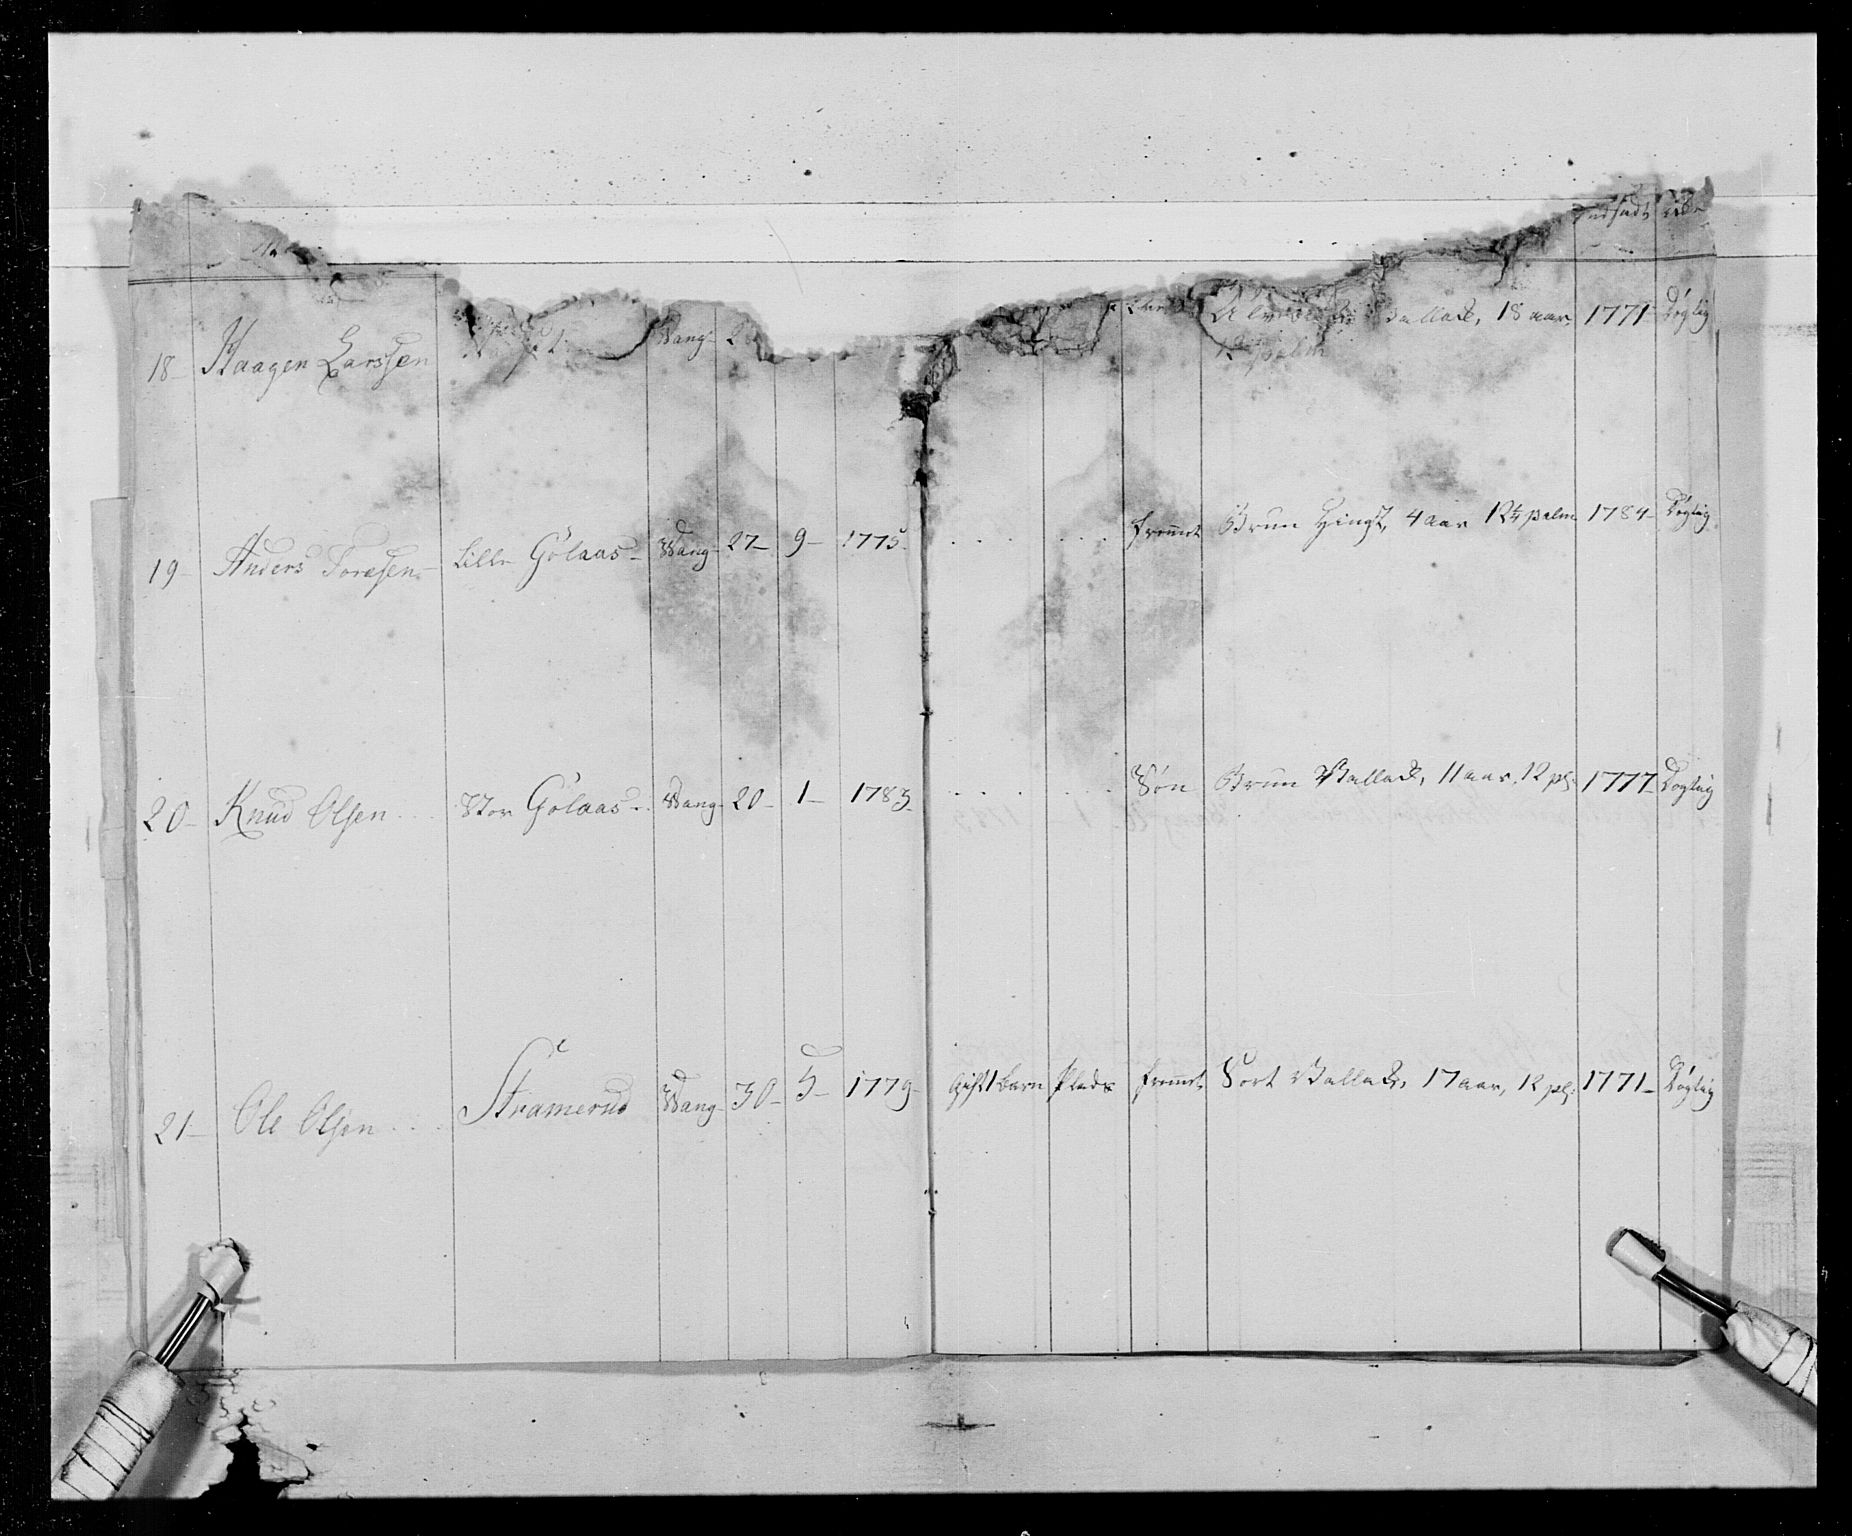 Indsadt
18– Haagen Larssen Wang– Wallack, 18 aar, 1771– Dygtig
12 palm
19– Anders Toresen– Lille Gölaas– Wang– 27– 9– 1775– . . . . . . . fremet Brun Hingst, 4 aar 12¼ palm 1784– Dygtig
20– Knud Olsen . . . Stor Gölaas– Wang– 20– 1– 1783– . . . . . . . Søn Brun Wallack, 11 aar, 12 pl: 1777– Dygtig
21– Ole Olsen . . . Stramerud Wang– 30– 5– 1779– Gift 1 barn Plads fremet Sort Wallack, 17 aar, 12 pl: 1771– Dygtig